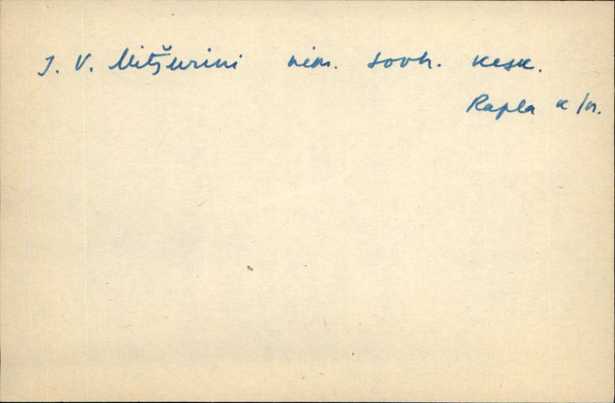 J. V. Mitšurini nim. sovh. kesk.
Rapla k/n.